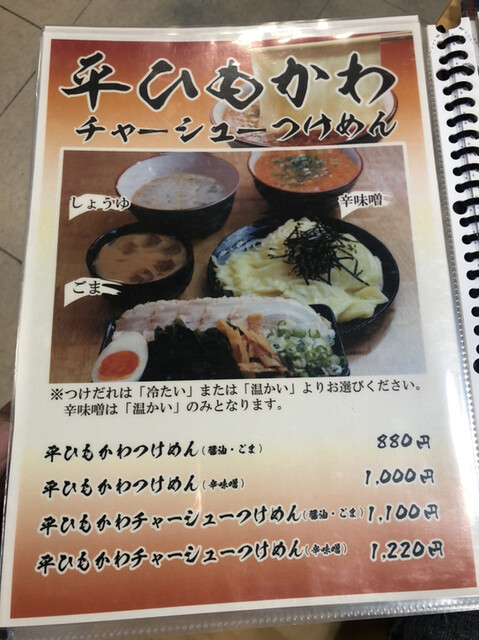 平ひもかわ
チャーシューつけめん
しょうゆ
辛味噌
ごま
※つけだれは「冷たい」または「温かい」よりお選びください。
辛味噌は「温かい」のみとなります。
平ひもかわつけめん(醤油・ごま) 880円
平ひもかわつけめん(辛味噌) 1,000円
平ひもかわチャーシューつけめん(醤油・ごま) 1,100円
平ひもかわチャーシューつけめん(辛味噌) 1,220円